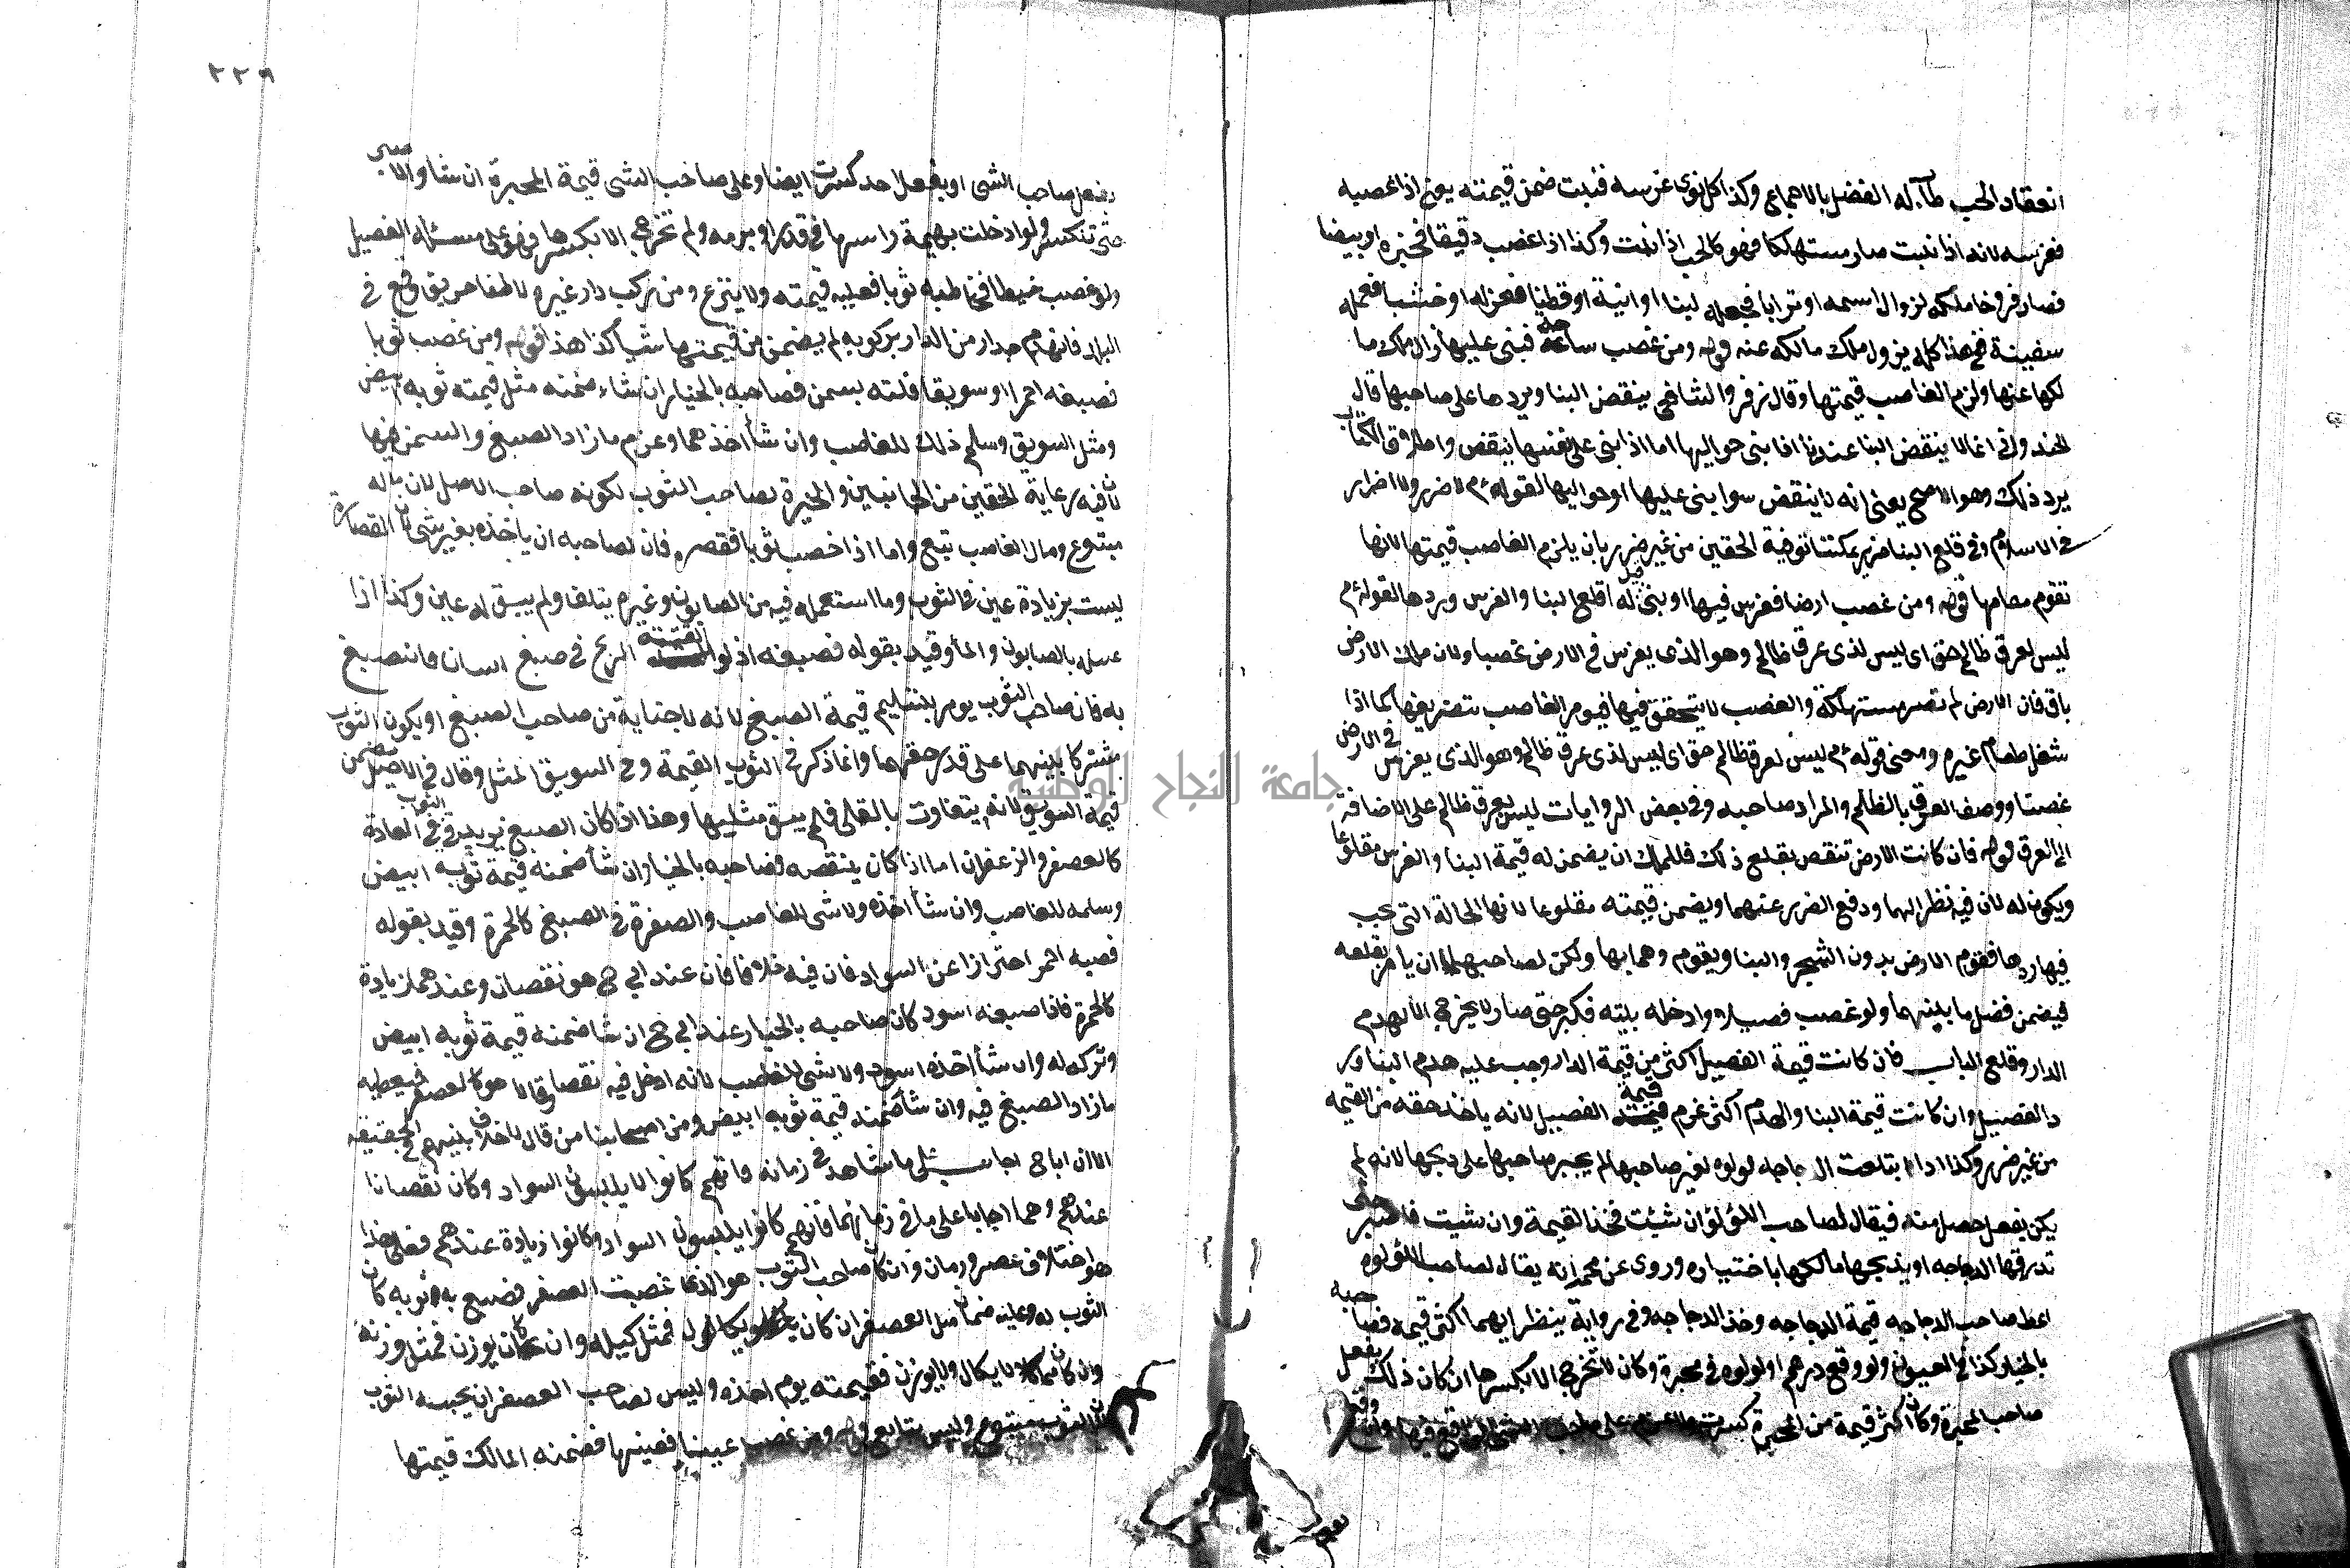 انعقاد الحب طاب له الفضل بالاجماع وكذا كل نوى غرسه فنبت ضمن قيمته يعنى اذا غصبه
فغرسه لانه اذا نبت صار مستهلكا فهو كالحب اذا نبت وكذا اذا غصب دقيقا فخبزه او بيضا
فصار فروخا ملكه لزوال اسمه او ترابا فجعله لبنا او انية او قطنا فغزله او خشبا فعمله
سفينة فهذا كله يزول ملك مالكه عنه قوله ومن غصب ساجة فبنى عليها زال ملك ما
لكها عنها ولزم الغاصب قيمتها وقال زفر والشافعى ينقض البنا ويردها على صاحبها قال
الهندوانى انما لا ينقض البنا عندنا اذا بنى حواليها اما اذا بنى على نفسها ينقض واطلاق الكتاب
يرد ذلك وهو الاصح يعنى انه لا ينقض سوا بنى عليها او حواليها لقوله ءم لا ضرر ولا اضرار
فى الاسلام وفى قلع البنا ضرر يمكننا توفية الحقين من غير ضرر بان يلزم الغاصب قيمتها لانها
تقوم مقامها قوله ومن غصب ارضا فغرس فيها او بنى قيل له اقلع البنا والغرس وردها لقوله ءم
ليس لعرق ظالم حق اى ليس لذى عرق ظالم وهو الذى يغرس فى الارض غصبا ولان ملك الارض
باق فان الارض لم تصر مستهلكة والغصب لا يتحقق فيها فيومر الغاصب بتفريغها كما اذا
شغل طعام غيره ومعنى قوله ءم ليس لعرق ظالم حق اى ليس لذى عرق ظالم وهو الذى يغرس فى الارض
غصبا ووصف العرق بالظلم والمراد صاحبه وفى بعض الروايات ليس لعرق ظالم على الاضافة
الى العرق قوله فان كانت الارض تنقص بقلع ذلك فللملك ان يضمن له قيمة البنا والغرس مقلوعا
ويكون له لان فيه نظرا لهما ودفع الضرر عنهما ويضمن قيمته مقلوعا لانها الحالة التى يجب
فيها ردها فقوم الارض بدون الشجر والبنا ويقوم وهما بها ولكن لصاحبهما ان يامر بقلعه
فيضمن فضل ما بينهما ولو غصب فصيلا وادخله بيته فكبر حتى صار لا يخرج الا بهدم
الدار وقلع الباب فان كانت قيمة الفصيل اكثر من قيمة الدار وجب عليه هدم البنا ور
د الفصيل وان كانت قيمة البنا والهدم اكثر غرم قيمة الفصيل لانه ياخذ حقه من القيمة
من غير ضرر وكذا اذا ابتلعت الدجاجه لولوه لغير صاحبها لم يجبر صاحبها على ذبحها لانه لم
يكن بفعل حصل منه فيقال لصاحب اللؤلؤ ان شئت فخذ القيمة وان شيت فاصبر حتى
تدرقها الدجاجه او يذبحها مالكها باختياره وروى عن محمد انه يقال لصاحب اللؤلوه
اعط صاحب الدجاجه قيمة الدجاجه وخذ الدجاجه وفى رواية ينظر ايهما اكثر قيمه فصاحبه
بالخيار كذا فى العيون ولو وقع درهم او لولوه فى محبرة وكان لا تخرج الا بكسرها ان كان ذلك بفعل
صاحب المحبرة وكان اكثر قيمة من المحبرة كسرت ولا غرم على صاحب الشى الواقع فيها وان وقع
بفعل صاحب الشى او بفعل احد كسرت ايضا وعلى صاحب الشى قيمة المحبرة ان شا والا صبر
حتى تنكسر ولو ادخلت بهيمة راسها فى قدر او برمه ولم تخرج الا بكسرها فهو على مسئلة الفصيل
ولو غصب خيطا فخاط به ثوبا فعليه قيمته ولا ينزع ومن ركب دار غيره لاطفا حريق وقع فى
البلد فانهدم جدار من الدار بركوبه لم يضمن من قيمتها شيا كذا هذا قوله ومن غصب ثوبا
فصبغه احمر او سويقا فلته بسمن فصاحبه بالخيار ان شاء ضمنه مثل قيمته ثوبه ابيض
ومثل السويق وسلم ذلك للغاصب وان شأ اخذهما وغرم ما زاد الصبغ والسمن فيهما
لان فيه رعاية الحقين من الجانبين والخيرة لصاحب الثوب لكونه صاحب الاصل لان ماله
متبوع ومال الغاصب تبع واما اذا غصب ثوبا فقصره فان لصاحبه ان ياخذه بغير شى لان القصارة
ليست بزيادة عين فى الثوب وما استعمله فيه من الصابون وغيره يتلف ولم يبق له عين وكذا اذا
غسله بالصابون والمأ وقيد بقوله فصبغه اذ لو القته الريح فى صبغ انسان فانصبغ
به فان صاحب الثوب يومر بتسليم قيمة الصبغ لانه لا جناية من صاحب الصبغ او يكون الثوب
مشتركا بينهما على قدر حقهما وانما ذكر فى الثوب القيمة وفى السويق المثل وقال فى الاصل يضمن
قيمة السويق لانه يتفاوت بالقلى فلم يبق مثليا وهذا اذا كان الصبغ يزيد فى الثوب فى العادة
كالعصفر والزعفران اما اذا كان ينقصه فصاحبه بالخيار ان شأ ضمنه قيمة ثوبه ابيض
وسلمه للغاصب وان شأ اخذه ولا شى للغاصب والصفرة فى الصبغ كالحمرة وقيد بقوله
فصبغه احمر احترازا عن السواد فان فيه خلافا فان عند ابي ح هو نقصان وعندهما زيادة
كالحمرة فاذا صبغه اسود كان صاحبه بالخيار عند ابي ح ان شا ضمنه قيمة ثوبه ابيض
وتركه له وان شأ اخذه اسود ولا شى للغاصب لانه ادخل فيه نقصا وقالا هو كالعصفر فيعطيه
ما زاد الصبغ فيه وان شا ضمنه قيمة ثوبه ابيض ومن اصحابنا من قال لا خلاف بينهم فى الحقيقه
الا ان ابا ح اجاب على ما شاهد فى زمانه فانهم كانوا لا يلبسون السواد وكان نقصانا
عندهم وهما اجابا على ما فى زمانهما فانهم كانوا يلبسون السواد وكانوا زيادة عندهم فعلى هذا
هو اختلاف عصر وزمان وان كان صاحب الثوب هو الذى غصب العصفر فصبغ به ثوبه كان
الثوب له وعليه ضمان مثل العصفر ان كان يكال فمثل كيله وان كان يوزن فمثل وزنه
وان كان مما لا يكال ولا يوزن فقيمته يوم اخذه وليس لصاحب العصفر ان يحبس الثوب
لان الثوب متبوع وليس بتابع قوله ومن غصب عينا فغيبها فضمنه المالك قيمتها
٢٢٩
جامعة النجاح الوطنية